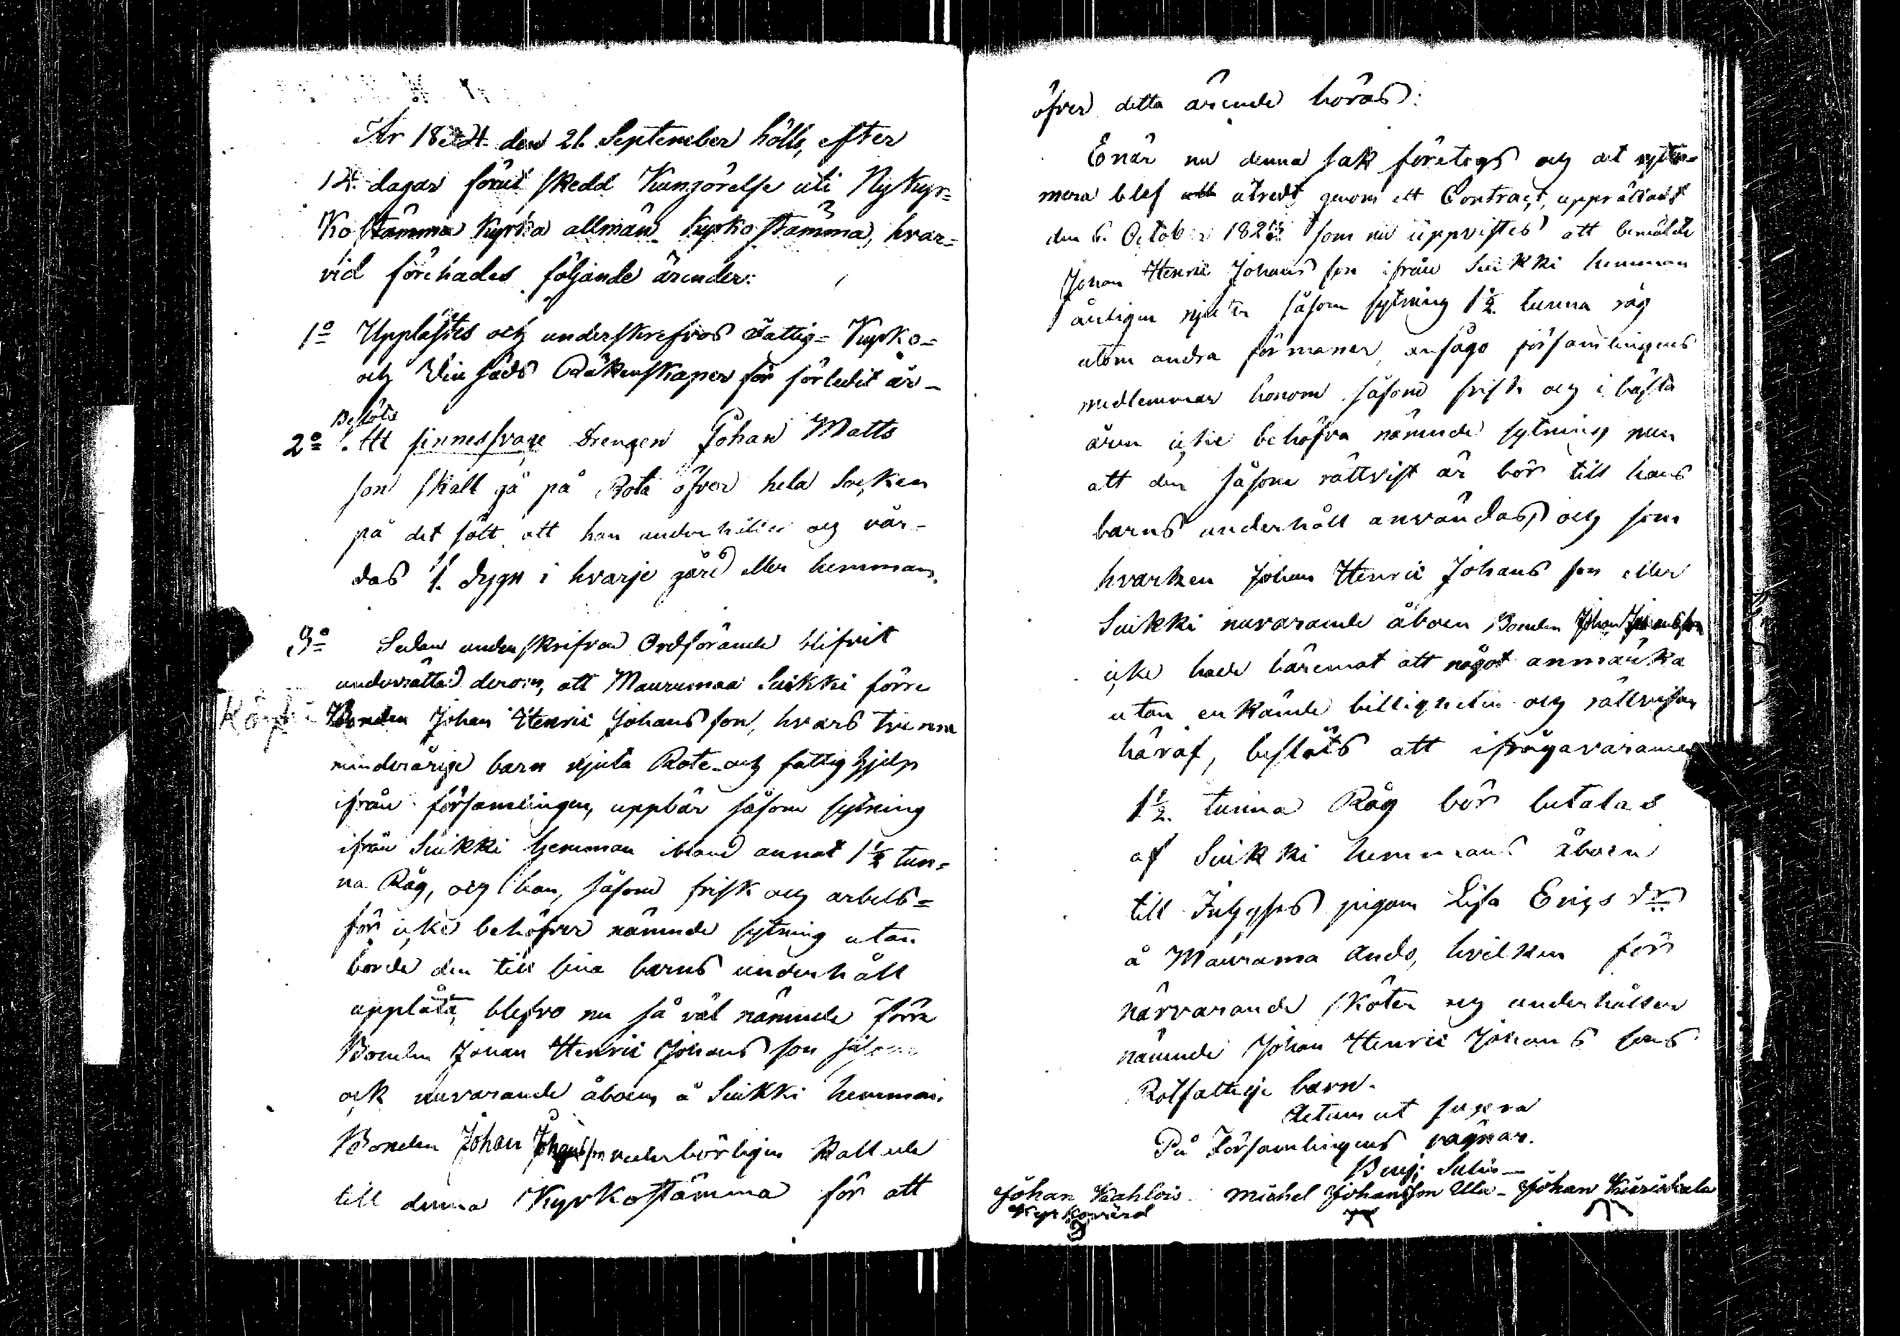 År 1834 den 21 September hölls, efter
14 dagar förut skedd Kungörelse uti Nykyr=
Ko stämma Kyrka allmän Kyrko stämma, hvar=
vid förehades följande ärender:
1o Upplästes och underskrefvos Fattig= Kyrko=
och Vin säds Räkenskaper för förledit år –
Beslöts
2o Att sinnessvage Drengen Johan Matts
son skall gå på Rota öfver hela Socken
på det sätt att han underhålles och vår=
das 1. dygn i hvarje gård eller hemman.
3o Sedan underskrifven Ordförande blifvit
underrättad derom, att Maurumaa Suikki förre
Bonden Johan Henric Johans son, hvars trenne
minderårige barn njuta Rote- och fattig hjelp
ifrån församlingen, uppbär såsom sytning
ifrån Suikki hemman ibland annat 1½ tun=
na Råg, och han, såsom frisk och arbets=
för icke behöfver nämnde sytning utan
borde den till sina barns underhåll
upplåta, blefvo nu så väl nämnde förre
Bonden Johan Henric Johans son såsom
ock nuvarande åboen å Suikki hemman
Bonden Johan Johansson vederbörligen kallade
till denna Kyrkostämma för att
öfver detta ärende höras:
Enär nu denna sak företogs och det ytter=
mera blef utredt genom ett Contract upprättadt
den 6. October 182 som nu uppvistes att bemälde
Johan Henric Johans son ifrån Suikki hemman
årligen njuter såsom sytning 1½ tunna råg
utom andra förmaner, ansågo församlingens
medlemmar honom såsom frisk och i bästa
åren icke behöfva nämnde sytning men
att den såsom rättvist är bör till hans
barns underhåll användas, och som
hvarken Johan Henric Johans son eller
Suikki nuvarande åboen Bonden Johan Johansson
icke hade häremot att något anmärka
utan erkände billigheten och rättvisan
häraf, beslöts att ifrågavarande
1½ tunna Råg bör betalas
af Suikki hemmans åboen
till Inhyses pigan Lisa Erics dr
å Mauruma ands, hvilken för
närvarande sköter och underhåller
nämnde Johan Henric Johans sons
Rotfattige barn.
Actum ut supra
På Församlingens vägnar.
Benj:
Johan Michel Johansson Ulla – Johan
Kyrkovärd